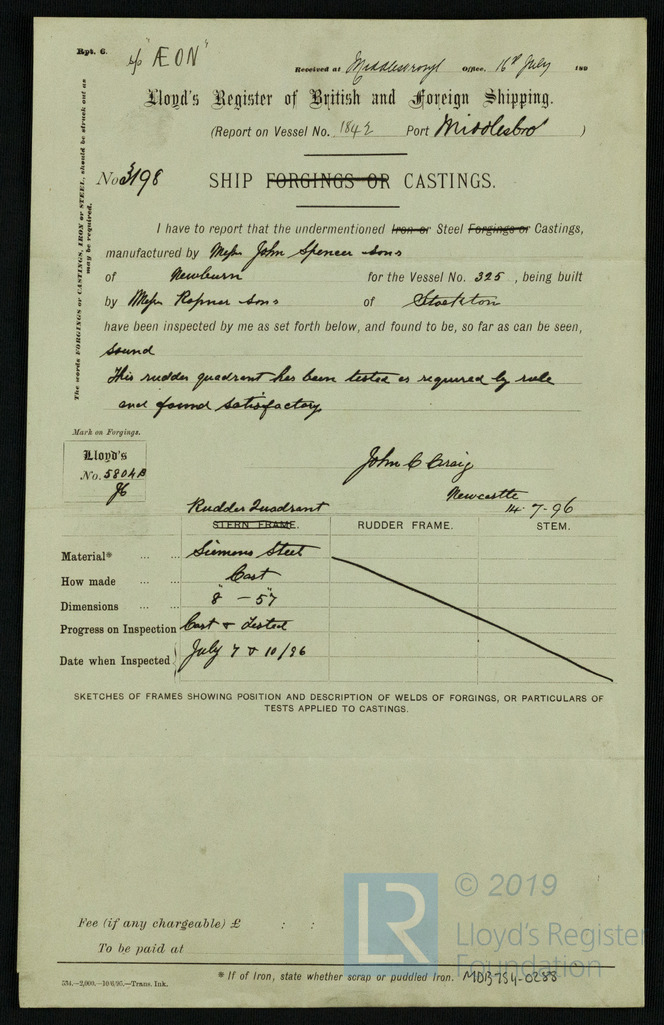 Rpt. 6.
s/s "ÆON"
Received at Middlesbrough Office, 16th July 189
Lloyd's Register of British and Foreign Shipping.
(Report on Vessel No. 1842 Port Middlesbro' )
The words FORGINGS or CASTINGS, IRON or STEEL, should be struck out as
may be required.
No. 3198
SHIP FORGINGS OR CASTINGS.
I have to report that the undermentioned Iron or Steel Forgings or Castings,
manufactured by Messrs John Spencer & Sons
of Newburn for the Vessel No. 325 , being built
by Messrs Ropner & Sons of Stockton
have been inspected by me as set forth below, and found to be, so far as can be seen,
sound
This rudder quadrant has been tested as required by rule
and found satisfactory
Mark on Forgings.
Lloyd's
No. 5804B
JC
John C Craig
Newcastle
14-7-96
Rudder Quadrant
STERN FRAME. RUDDER FRAME. STEM.
Material* ... ... Siemens Steel
How made ... ... Cast
Dimensions ... ... 8" - 5 1/2"
Progress on Inspection Cast & Tested
Date when Inspected July 7 & 10/96
SKETCHES OF FRAMES SHOWING POSITION AND DESCRIPTION OF WELDS OF FORGINGS, OR PARTICULARS OF
TESTS APPLIED TO CASTINGS.
Fee (if any chargeable) £ : :
To be paid at
* If of Iron, state whether scrap or puddled Iron. MDB754-0288
534.—2,000.—10/6/95.—Trans. Ink.
LR
© 2019
Lloyd's Register
Foundation